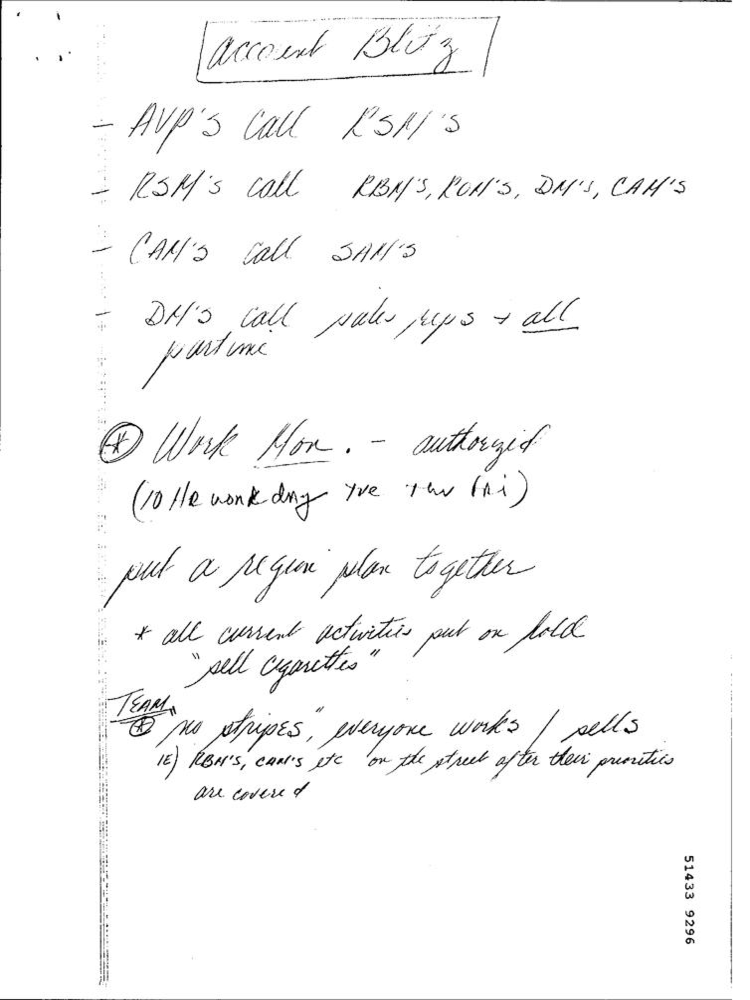 Account Blitz
- AVP'S Call RSM'S
- RSM's call RBM'S, ROM'S, DM'S, CAM'S
- CAM'S Call SAM'S
- DM'S Call sales reps + all
partime
* Work Mon. - authorzid
(10 HR work day Tue thu Fri)
put a region plan together
* all current activities put on hold
"sell cigarettes"
TEAM
* "no stripes", everyone works / sells
IE) RBM'S, CAM'S etc on the street after their priorities
are covered
51433 9296